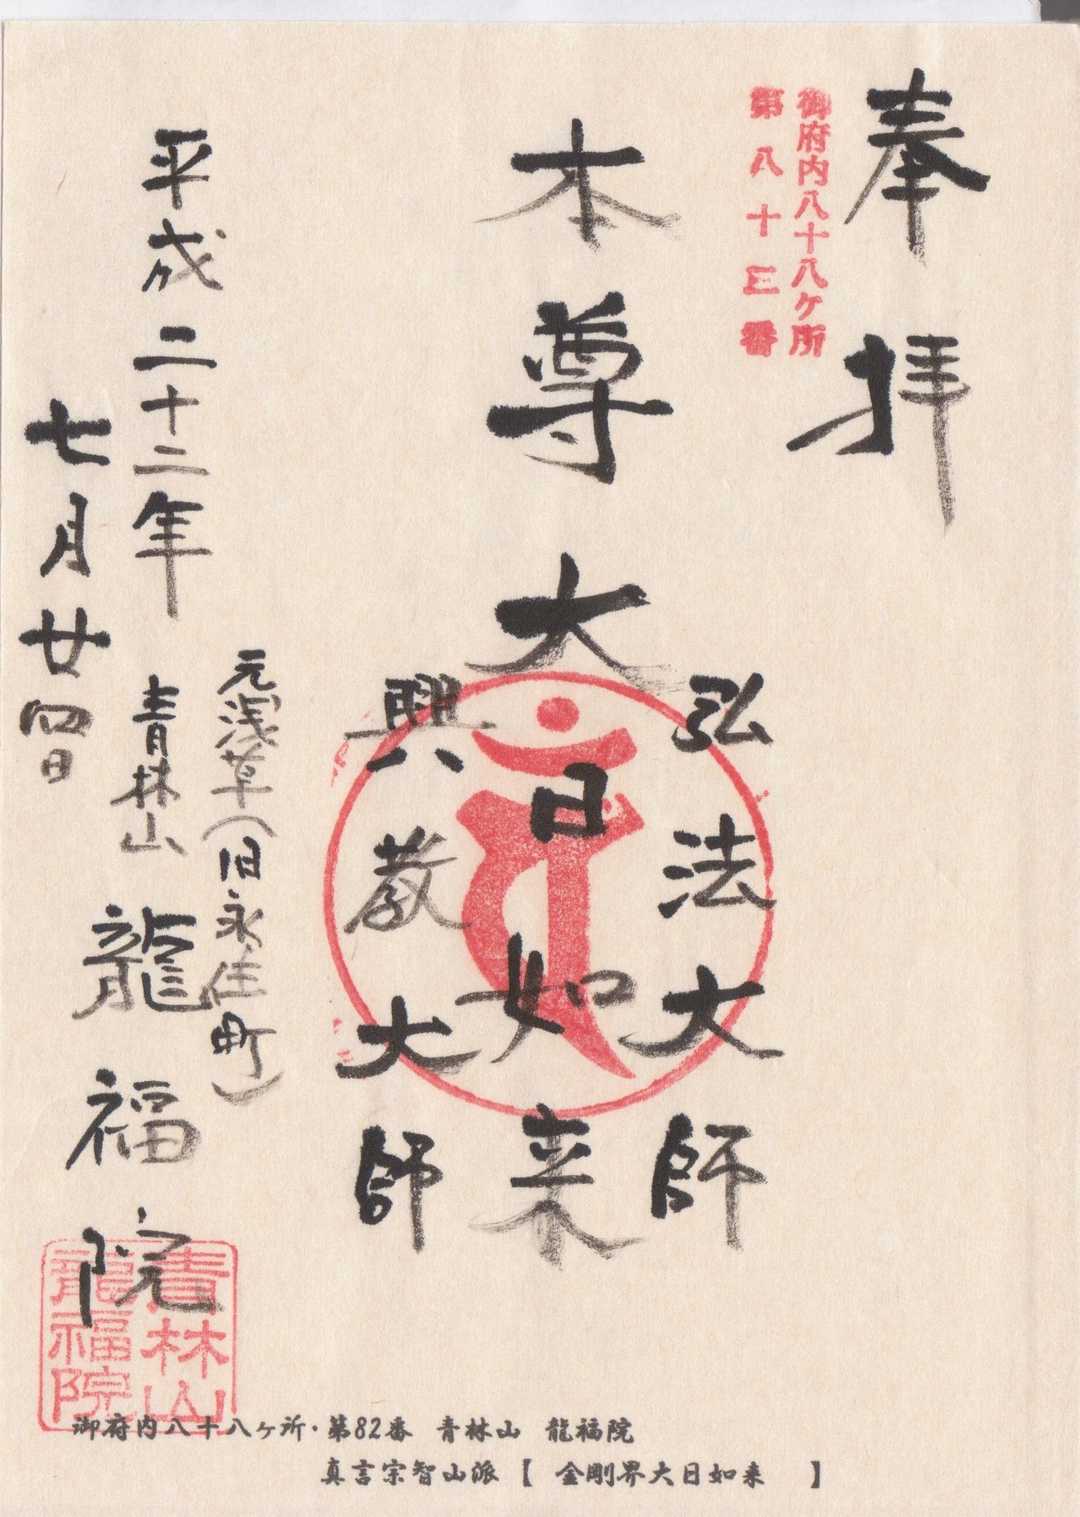 奉拝
御府内八十八ケ所
第八十三番
弘法大師
本尊大日如来
興教大師
元浅草(旧永住町)
平成二十二年
七月廿四日
青林山龍福院
青林山
龍福院
御府内八十八ヶ所・第82番 青林山 龍福院
真言宗智山派【 金剛界大日如来 】